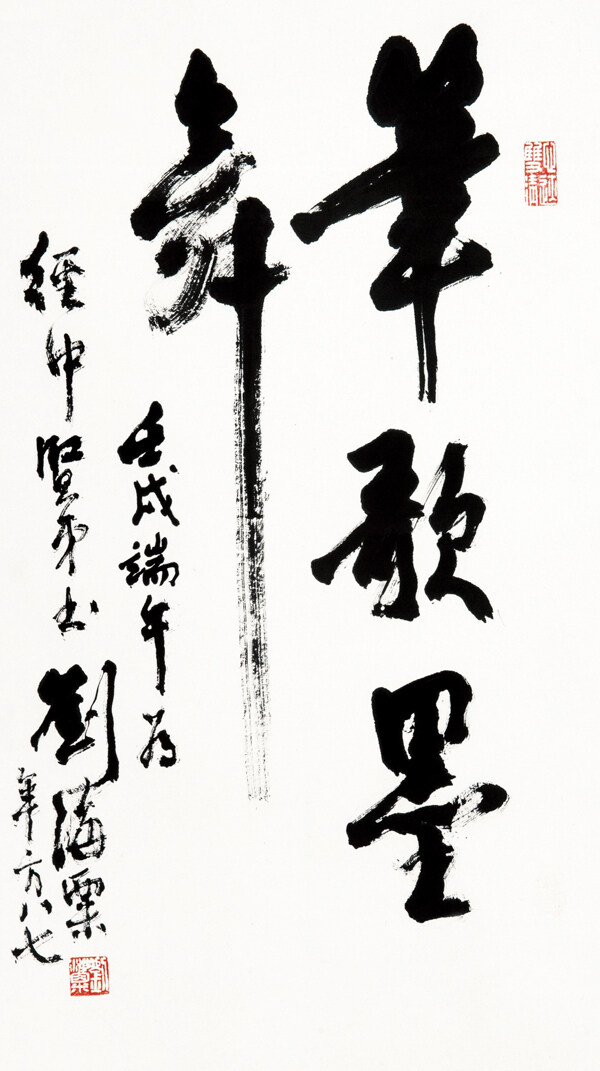 筆歌墨
舞
壬戌端午為
經中賢弟書劉海粟
年方八七
劉海粟